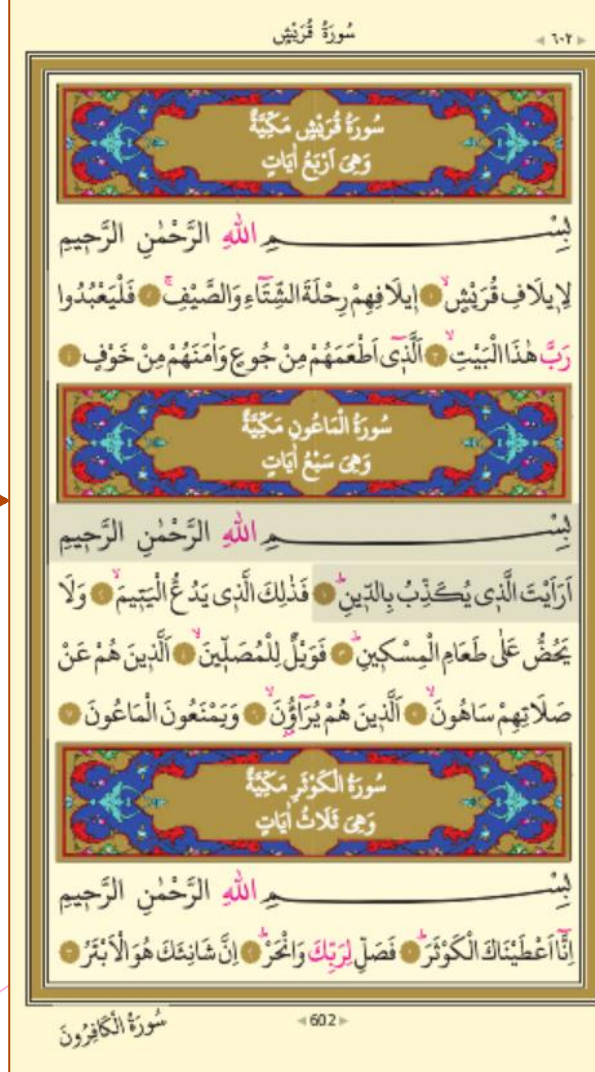 سُورَةُ قُرَيْشٍ
٦٠٢
سُورَةُ قُرَيْشٍ مَكِّيَّةٌ
وَهِيَ اَرْبَعُ اٰيَاتٍ
بِسْمِ اللّٰهِ الرَّحْمٰنِ الرَّحِيمِ
لِاِيلَافِ قُرَيْشٍۙ ١ اِيلَافِهِمْ رِحْلَةَ الشِّتَٓاءِ وَالصَّيْفِۚ ٢ فَلْيَعْبُدُوا
رَبَّ هٰذَا الْبَيْتِۙ ٣ اَلَّذ۪ٓى اَطْعَمَهُمْ مِنْ جُوعٍ وَاٰمَنَهُمْ مِنْ خَوْفٍ ٤
سُورَةُ الْمَاعُونِ مَكِّيَّةٌ
وَهِيَ سَبْعُ اٰيَاتٍ
بِسْمِ اللّٰهِ الرَّحْمٰنِ الرَّحِيمِ
اَرَاَيْتَ الَّذ۪ى يُكَذِّبُ بِالدّ۪ينِۜ ١ فَذٰلِكَ الَّذ۪ى يَدُعُّ الْيَت۪يمَۙ ٢ وَلَا
يَحُضُّ عَلٰى طَعَامِ الْمِسْك۪ينِۜ ٣ فَوَيْلٌ لِلْمُصَلّ۪ينَۙ ٤ اَلَّذ۪ينَ هُمْ عَنْ
صَلَاتِهِمْ سَاهُونَۙ ٥ اَلَّذ۪ينَ هُمْ يُرَٓاؤُ۫نَۙ ٦ وَيَمْنَعُونَ الْمَاعُونَ ٧
سُورَةُ الْكَوْثَرِ مَكِّيَّةٌ
وَهِيَ ثَلَاثُ اٰيَاتٍ
بِسْمِ اللّٰهِ الرَّحْمٰنِ الرَّحِيمِ
اِنَّٓا اَعْطَيْنَاكَ الْكَوْثَرَۜ ١ فَصَلِّ لِرَبِّكَ وَانْحَرْۜ ٢ اِنَّ شَانِئَكَ هُوَ الْاَبْتَرُ ٣
602
سُورَةُ الْكَافِرُونَ